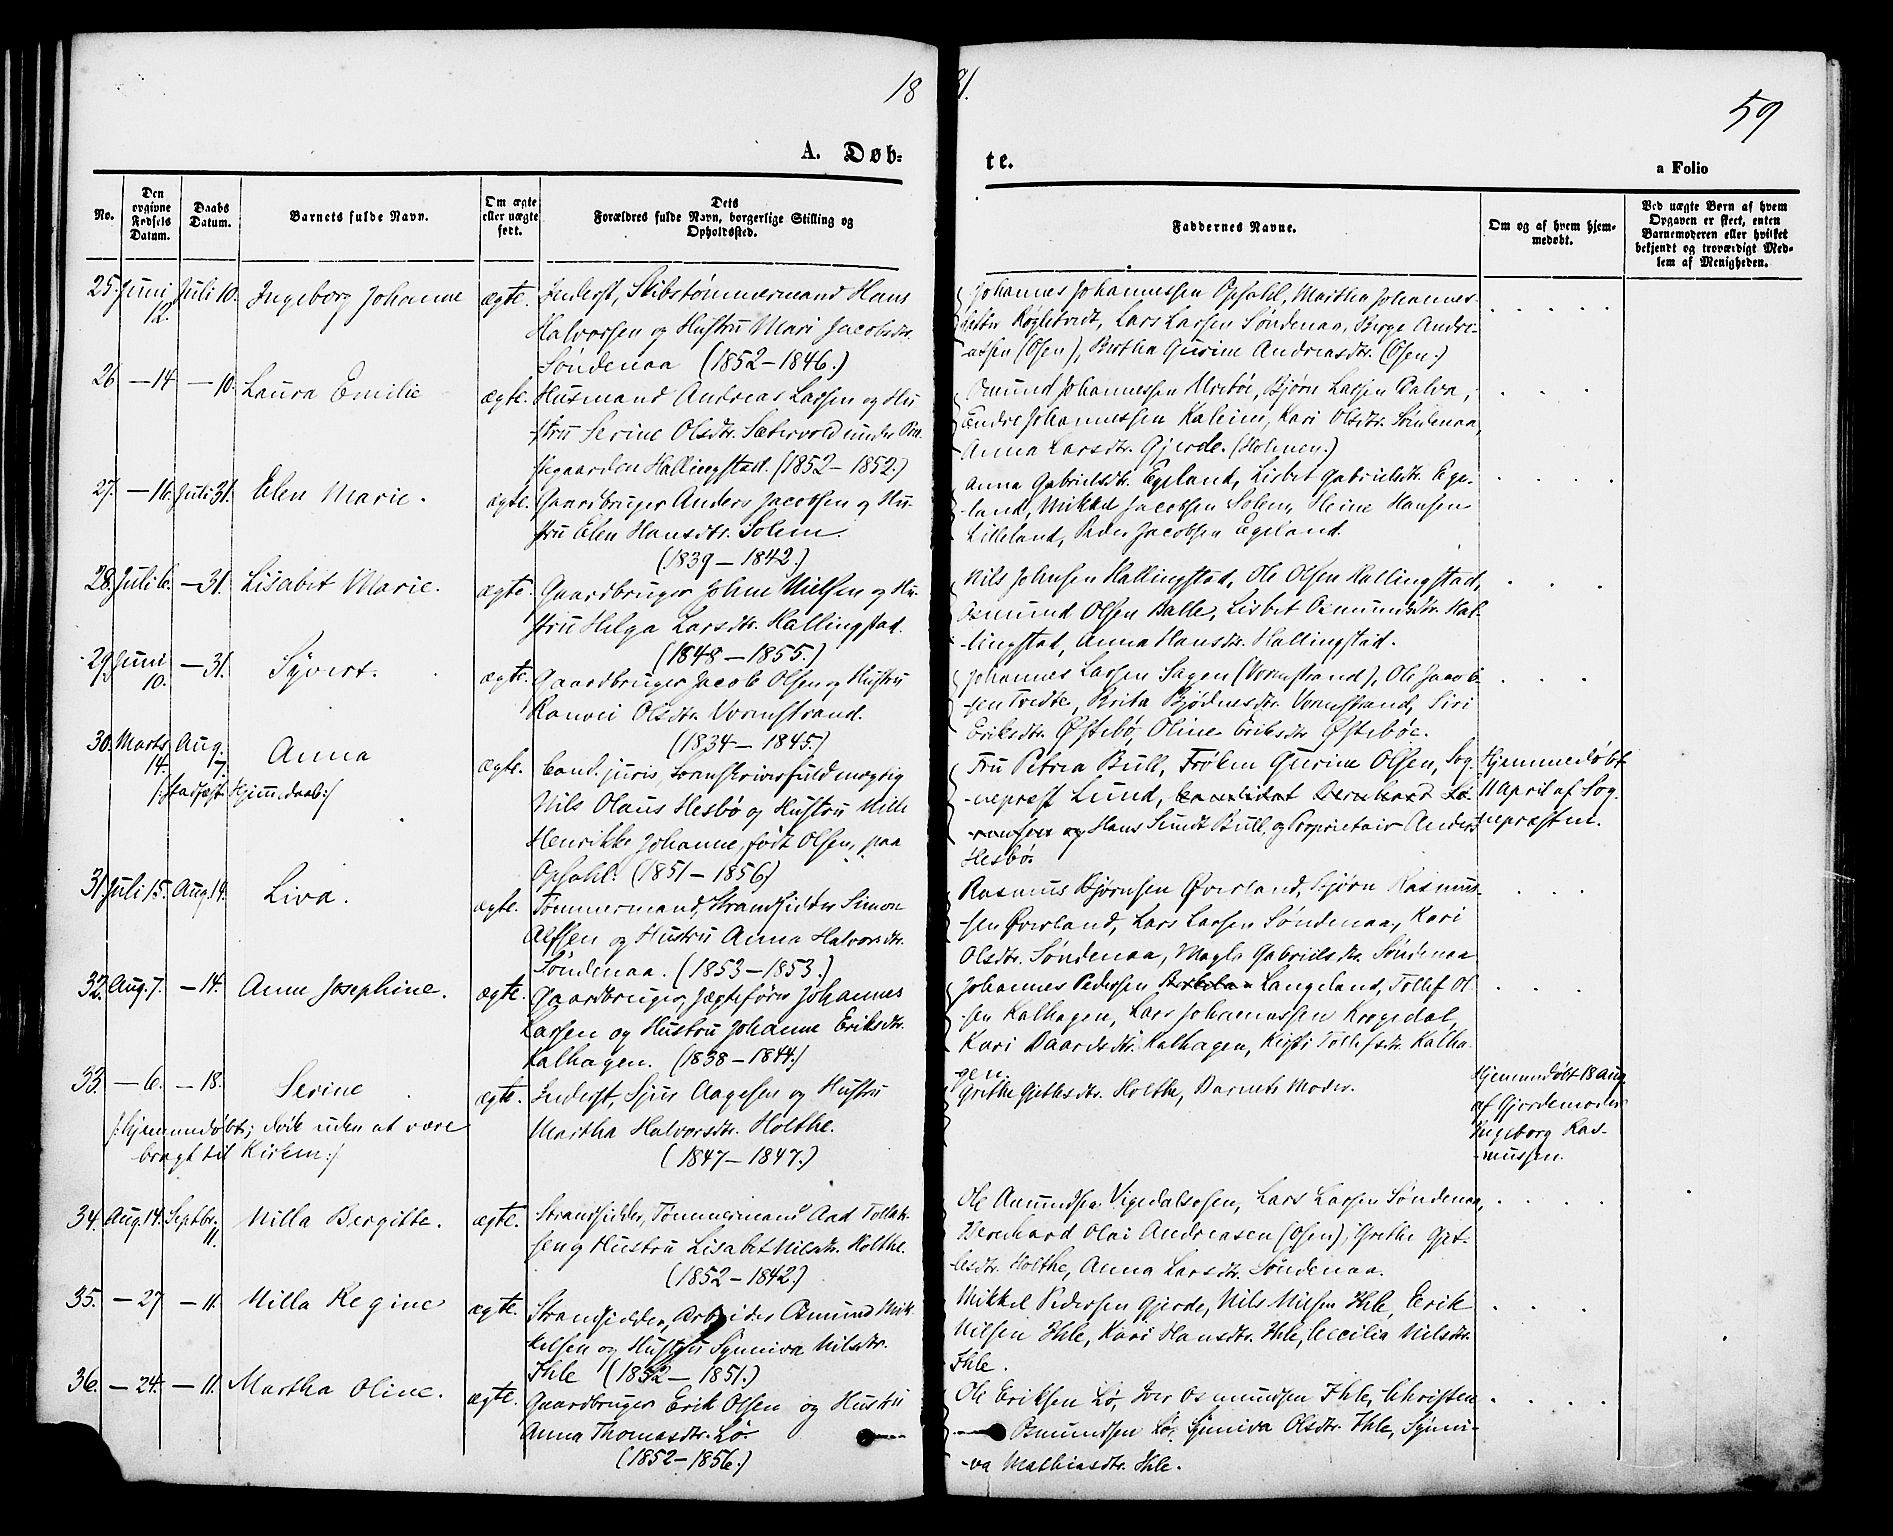 18
81.
59
A. Døb-
te.
a Folio
No.
Den opgivne Fødsels Datum.
Daabs Datum.
Barnets fulde Navn.
Om ægte eller uægte født.
Dets Forældres fulde Navn, borgerlige Stilling og Opholdssted.
Faddernes Navne.
Om og af hvem hjemmedøbt.
Ved uægte Børn af hvem Opgaven er skeet, enten Barnemoderen eller hvilket bekjendt og troværdigt Medlem af Menigheden.
25. Juni 12. Juli 10. Ingeborg Johanne ægte. Inderst, Skibstømmermand Hans
Halvorsen og Hustru Mari Jacobsdtr.
Søndenaa (1852-1846.)
Johannes Johannessen Opsahl, Martha Johannes-
detter Kogletvedt, Lars Larsen Søndenaa, Børge Andre-
assen (Osen), Bertha Gurine Andreasdtr. (Osen.)
26 -14 -10. Laura Emilie ægte. Husmand Andreas Larsen og Hu-
stru Serine Olsdtr. Sætervold under Præ-
stegaarden Hallingstad. (1852-1852.)
Osmund Johannessen, Bjørn Larsen
Endre Johannessen Kaleim, Kari Olsdtr. Søndenaa,
Anna Larsdtr. Gjerde. (Holmen.)
27. -16. Juli 31. Elen Marie. ægte. Gaardbruger Anders Jacobsen og Hu-
stru Elen Hansdtr. Solem.
(1839-1842.)
Anna Gabrielsdtr. Egeland, Lisbet Gabrielsdtr. Ege-
land, Mikkel Jacobsen Solem, Heine Hansen
Lilleland, Peder Jacobsen Egeland.
28. Juli 6. -31. Lisabet Marie. ægte. Gaardbruger Johne Nilsen og Hu-
stru Helga Larsdtr. Hallingstad.
(1848-1855.)
Nils Johnsen Hallingstad, Ole Olsen Hallingstad,
Osmund Olsen Balle, Lisbet Osmundsdtr. Hal-
lingstad, Anna Hansdtr. Hallingstad.
29. Juni 10. -31. Syvert. ægte. Gaardbruger Jacob Olsen og Hustru
Ranvei Olsdtr. Vormstrand.
(1834-1845.)
Johannes Larsen Sagen (Vormstrand), Ole Jacob-
sen Tvedte, Brita Bjødnesdtr. Vormstrand, Siri
Eriksdtr. Østebø, Oline Eriksdtr. Østebøe.
30. Marts 14. Aug. 7. Anna ægte. Cand. juris, Sorenskriverfuldmægtig
/:stadfæst. Hjem.daab:/
Nils Olaus Hesbø og Hustru Mille
Henrikke Johanne, født Olsen, paa
Opsahl. (1851-1856)
Fru Petrea Bull, Frøken Gurine Olsen, Sog-
nepræst Lund, Candidat Bernhard
og Hans Sundt Bull, og Proprietair Anders
Hesbø.
Hjemmedøbt
11 April af Sog-
nepræsten.
31. Juli 15. Aug. 14. Liva. ægte. Tømmermand, Strandsidder Simon
Alfsen og Hustru Anna Halvorsdtr.
Søndenaa. (1853-1853.)
Rasmus Bjørnsen Øverland, Bjørn Rasmus-
sen Øverland, Lars Larsen Søndenaa, Kari
Olsdtr. Søndenaa, Magla Gabrielsdtr. Søndenaa
32. Aug. 7. -14. Anne Josephine. ægte. Gaardbruger, Jægtefører Johannes
Larsen og Hustru Johanne Eriksdtr.
Kalhagen. (1838-1844.)
Johannes Pedersen Langeland, Tollef Ol-
sen Kalhagen, Lars Johannessen Krogedal,
Kari Baardsdtr. Kalhagen, Kirsti Tollefsdtr. Kalha-
gen.
33. -6. -18. Serine ægte. Inderst, Sjur Aagesen og Hustru
/:hjemmedøbt; døde uden at være
bragt til Kirken:/
Martha Halvorsdtr. Holthe.
(1847-1847.)
Grethe Gjetlesdtr. Holthe, Barnets Moder.
Hjemmedøbt 18 Aug.
af Gjordemoder
Ingeborg Ras-
mussen.
34. Aug. 14. Septbr. 11. Milla Bergitte. ægte. Strandsidder, Tømmermand Aad Tollak-
sen og Hustru Lisabet Nilsdtr. Holthe.
(1852-1842.)
Ole Amundsen Vigedalsosen, Lars Larsen Søndenaa,
Bernhard Olai Andreasen (Osen), Grethe Gjet-
lesdtr. Holthe, Anna Larsdtr. Søndenaa.
35. -27 -11. Milla Regine ægte. Strandsidder, Arbeider Osmund Mik-
kelsen og Hustru Synniva Nilsdtr.
Ihle (1852-1851.)
Mikkel Pedersen Gjerde, Nils Nilsen Ihle, Erik
Nilsen Ihle, Kari Hansdtr. Ihle, Cecilia Nilsdtr.
Ihle.
36. -24. -11. Martha Oline. ægte. Gaardbruger Erik Olsen og Hustru
Anna Thomasdtr. Lø.
(1852-1856.)
Ole Eriksen Lø, Iver Osmundsen Ihle, Christen
Osmundsen Lø, Synniva Olsdtr. Ihle, Synni-
va Mathiasdtr. Ihle.